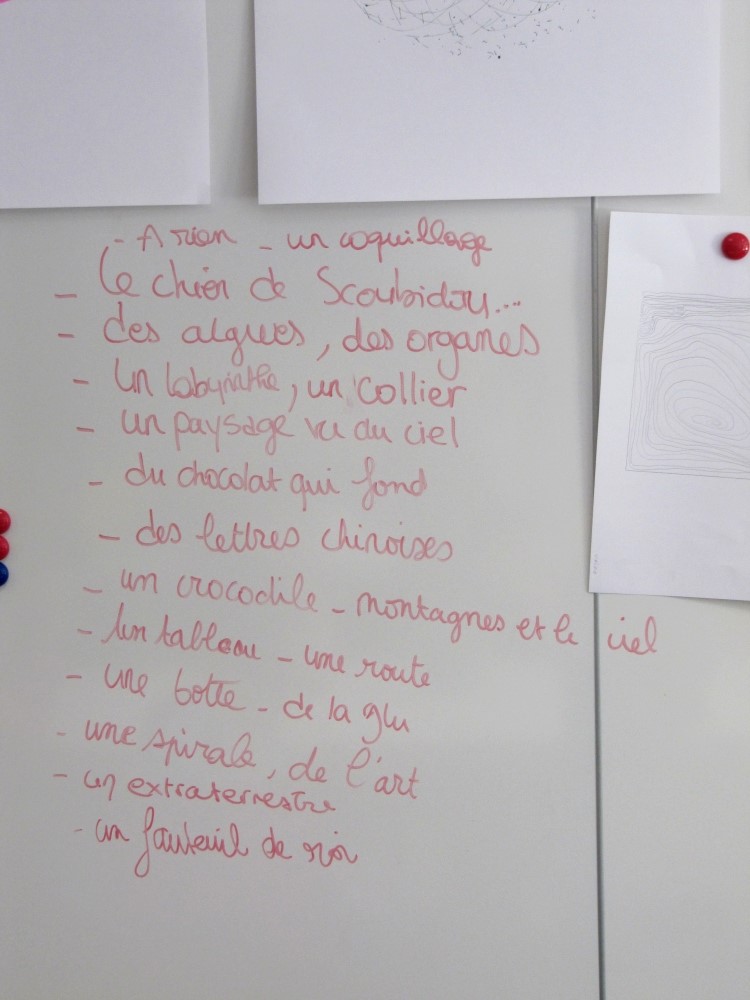 - A rien - un coquillage
- Le chien de Scoubidou...
- des algues, des organes
- Un labyrinthe, un collier
- un paysage vu du ciel
- du chocolat qui fond
- des lettres chinoises
- un crocodile - montagnes et le ciel
- Un tableau - une route
- une botte - de la glu
- une spirale, de l'art
- un extraterrestre
- un fauteuil de roi